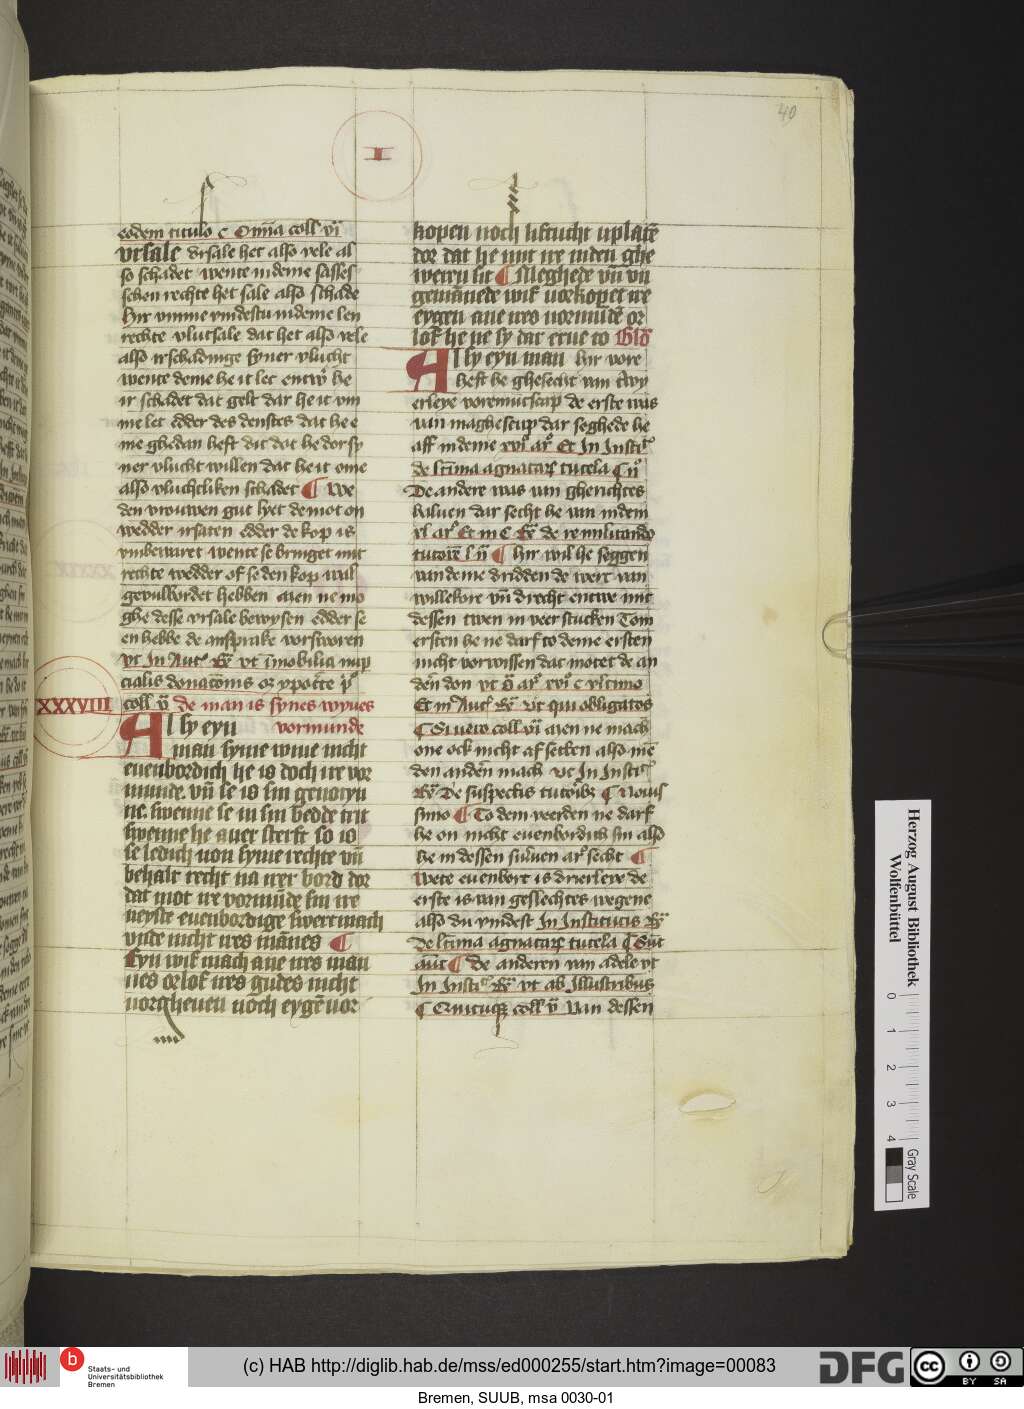 40
I
eodem titulo c Omīa coll vi
vrsale vrsale het also vele al
so schadet wente in deme sasses
schen rechte het sale also schade
hir vmme vindestu in deme len
rechte vlutsale dat het also vele
also irschadinge syner vlucht
wente deme he it let he
ir schadet dat gelt dar he it vm
me let edder des denstes dat he e
me ghedan heft dit dot he dor sy
ner vlucht willen dat he it eme
also vluchtliken schadet ¶ We
den vrouwen gut hyet de mot on
wedder irsaten edder de kop is
vmbewaret wente se bringet mit
rechte wedder of se den kop wul
gevulbordet hebben aien ne mo
ghe desse vrsale bewysen edder se
en hebbe de ansprake vorsworen
vt In Aut vt īmobilia nup
cialis donatōnis
coll v̄ de man is synes wyues
XXXVIII
Al sy eyn vormunde
man syme wiue nicht
euenbordich he is doch ire vor
munde vn̄ se is sin genotyn
ne swenne se in sin bedde trit
swenne he auer sterft so is
se ledich uon syme rechte vn̄
behalt recht na irer bord dor
dat mot ire vormūde sin ire
neyste euenbordige swertmach
vnde nicht ires mānes ¶
Eyn wif mach ane ires man
nes orlof ires gudes nicht
uorgheuen noch eygē uor
kopen noch liftucht uplatē
dor dat he mit ire inden ghe
weren sit ¶ Meghede vn̄ vn
gemānede wif uorkopet ire
eygen ane ires uormūdē or
lof he ne sy dar erue to Glo
Al sy eyn man hir vore
heft he ghesecht van twy
erleye voremutscap de erste was
van maghescup dar seghede he
aff in deme xvi ar Et In Insti
de ltīma agnatorū tutela ¶
De andere was van gherichtes
haluen dar secht he van in dem
xl ar Et in C de re militando
tutorē l ¶ hir wil he seggen
van deme dridden de wert van
willekore vn̄ drecht entwe mit
dessen twen in veer stucken Tom
ersten he ne darf to deme ersten
nicht vorwissen dat motet de an
derē don vt ar xvi c vltimo
Et in Aut vt qui obligatos
¶ Si uero coll vi aien ne mach
one ock nicht af setten also mē
den anden mach vt In Insti
De suspectis tutorib ¶ Nouis
simo ¶ To dem veerden ne darf
he on nicht euenbordich sin also
he in dessen suluen ar secht ¶
Wete euenbort is drierleye de
erste is van geslechtes wegene
also du vindest In Institucis
De ltīma agnatorū tutela ¶ Sūt
aūt ¶ De anderen van adele vt
In Insti vt ab Illustribus
¶ coll v̄ Van dessen
Herzog August Bibliothek
Wolfenbüttel
0 1 2 3 4
Gray Scale
b
Staats- und
Universitätsbibliothek
Bremen
(c) HAB http://diglib.hab.de/mss/ed000255/start.htm?image=00083
DFG
cc BY SA
Bremen, SUUB, msa 0030-01